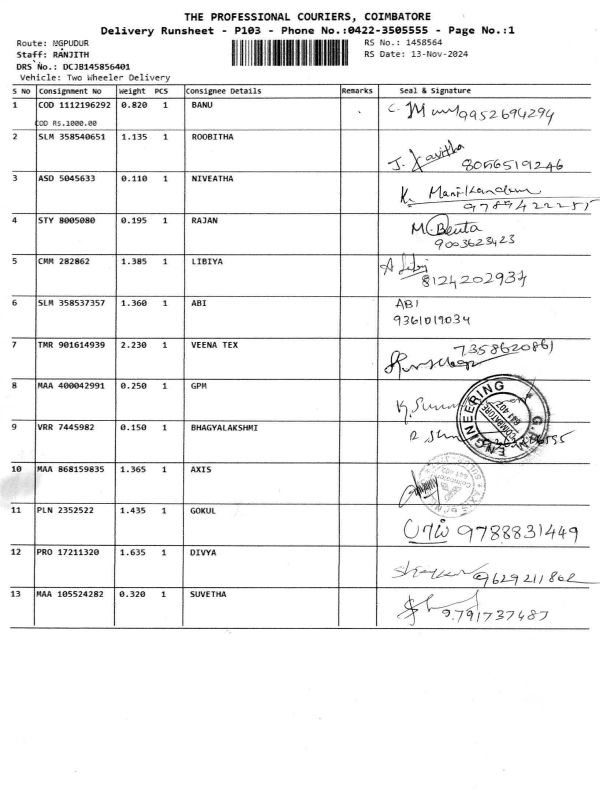 THE PROFESSIONAL COURIERS, COIMBATORE
Delivery Runsheet - P103 - Phone No.:0422-3505555 - Page No.:1
Route: NGPUDUR RS No.: 1458564
Staff: RANJITH RS Date: 13-Nov-2024
DRS No.: DCJB145856401
Vehicle: Two Wheeler Delivery
S No Consignment No Weight PCS Consignee Details Remarks Seal & Signature
1 COD 1112196292 0.820 1 BANU 9952694294
COD RS.1000.00
2 SLM 358540651 1.135 1 ROOBITHA J. Kavitha 8056519246
3 ASD 5045633 0.110 1 NIVEATHA K. Manikandan 9789422255
4 STY 8005080 0.195 1 RAJAN M. Benta
9003623423
5 CMM 282862 1.385 1 LIBIYA A Libi
8124202937
6 SLM 358537357 1.360 1 ABI ABI
9361019034
7 TMR 901614939 2.230 1 VEENA TEX 7358620861
8 MAA 400042991 0.250 1 GPM
ENGINEERING
COIMBATORE
641 402
9 VRR 7445982 0.150 1 BHAGYALAKSHMI
10 MAA 868159835 1.365 1 AXIS
11 PLN 2352522 1.435 1 GOKUL 9788831449
12 PRO 17211320 1.635 1 DIVYA 9629211802
13 MAA 105524282 0.320 1 SUVETHA 9791737487